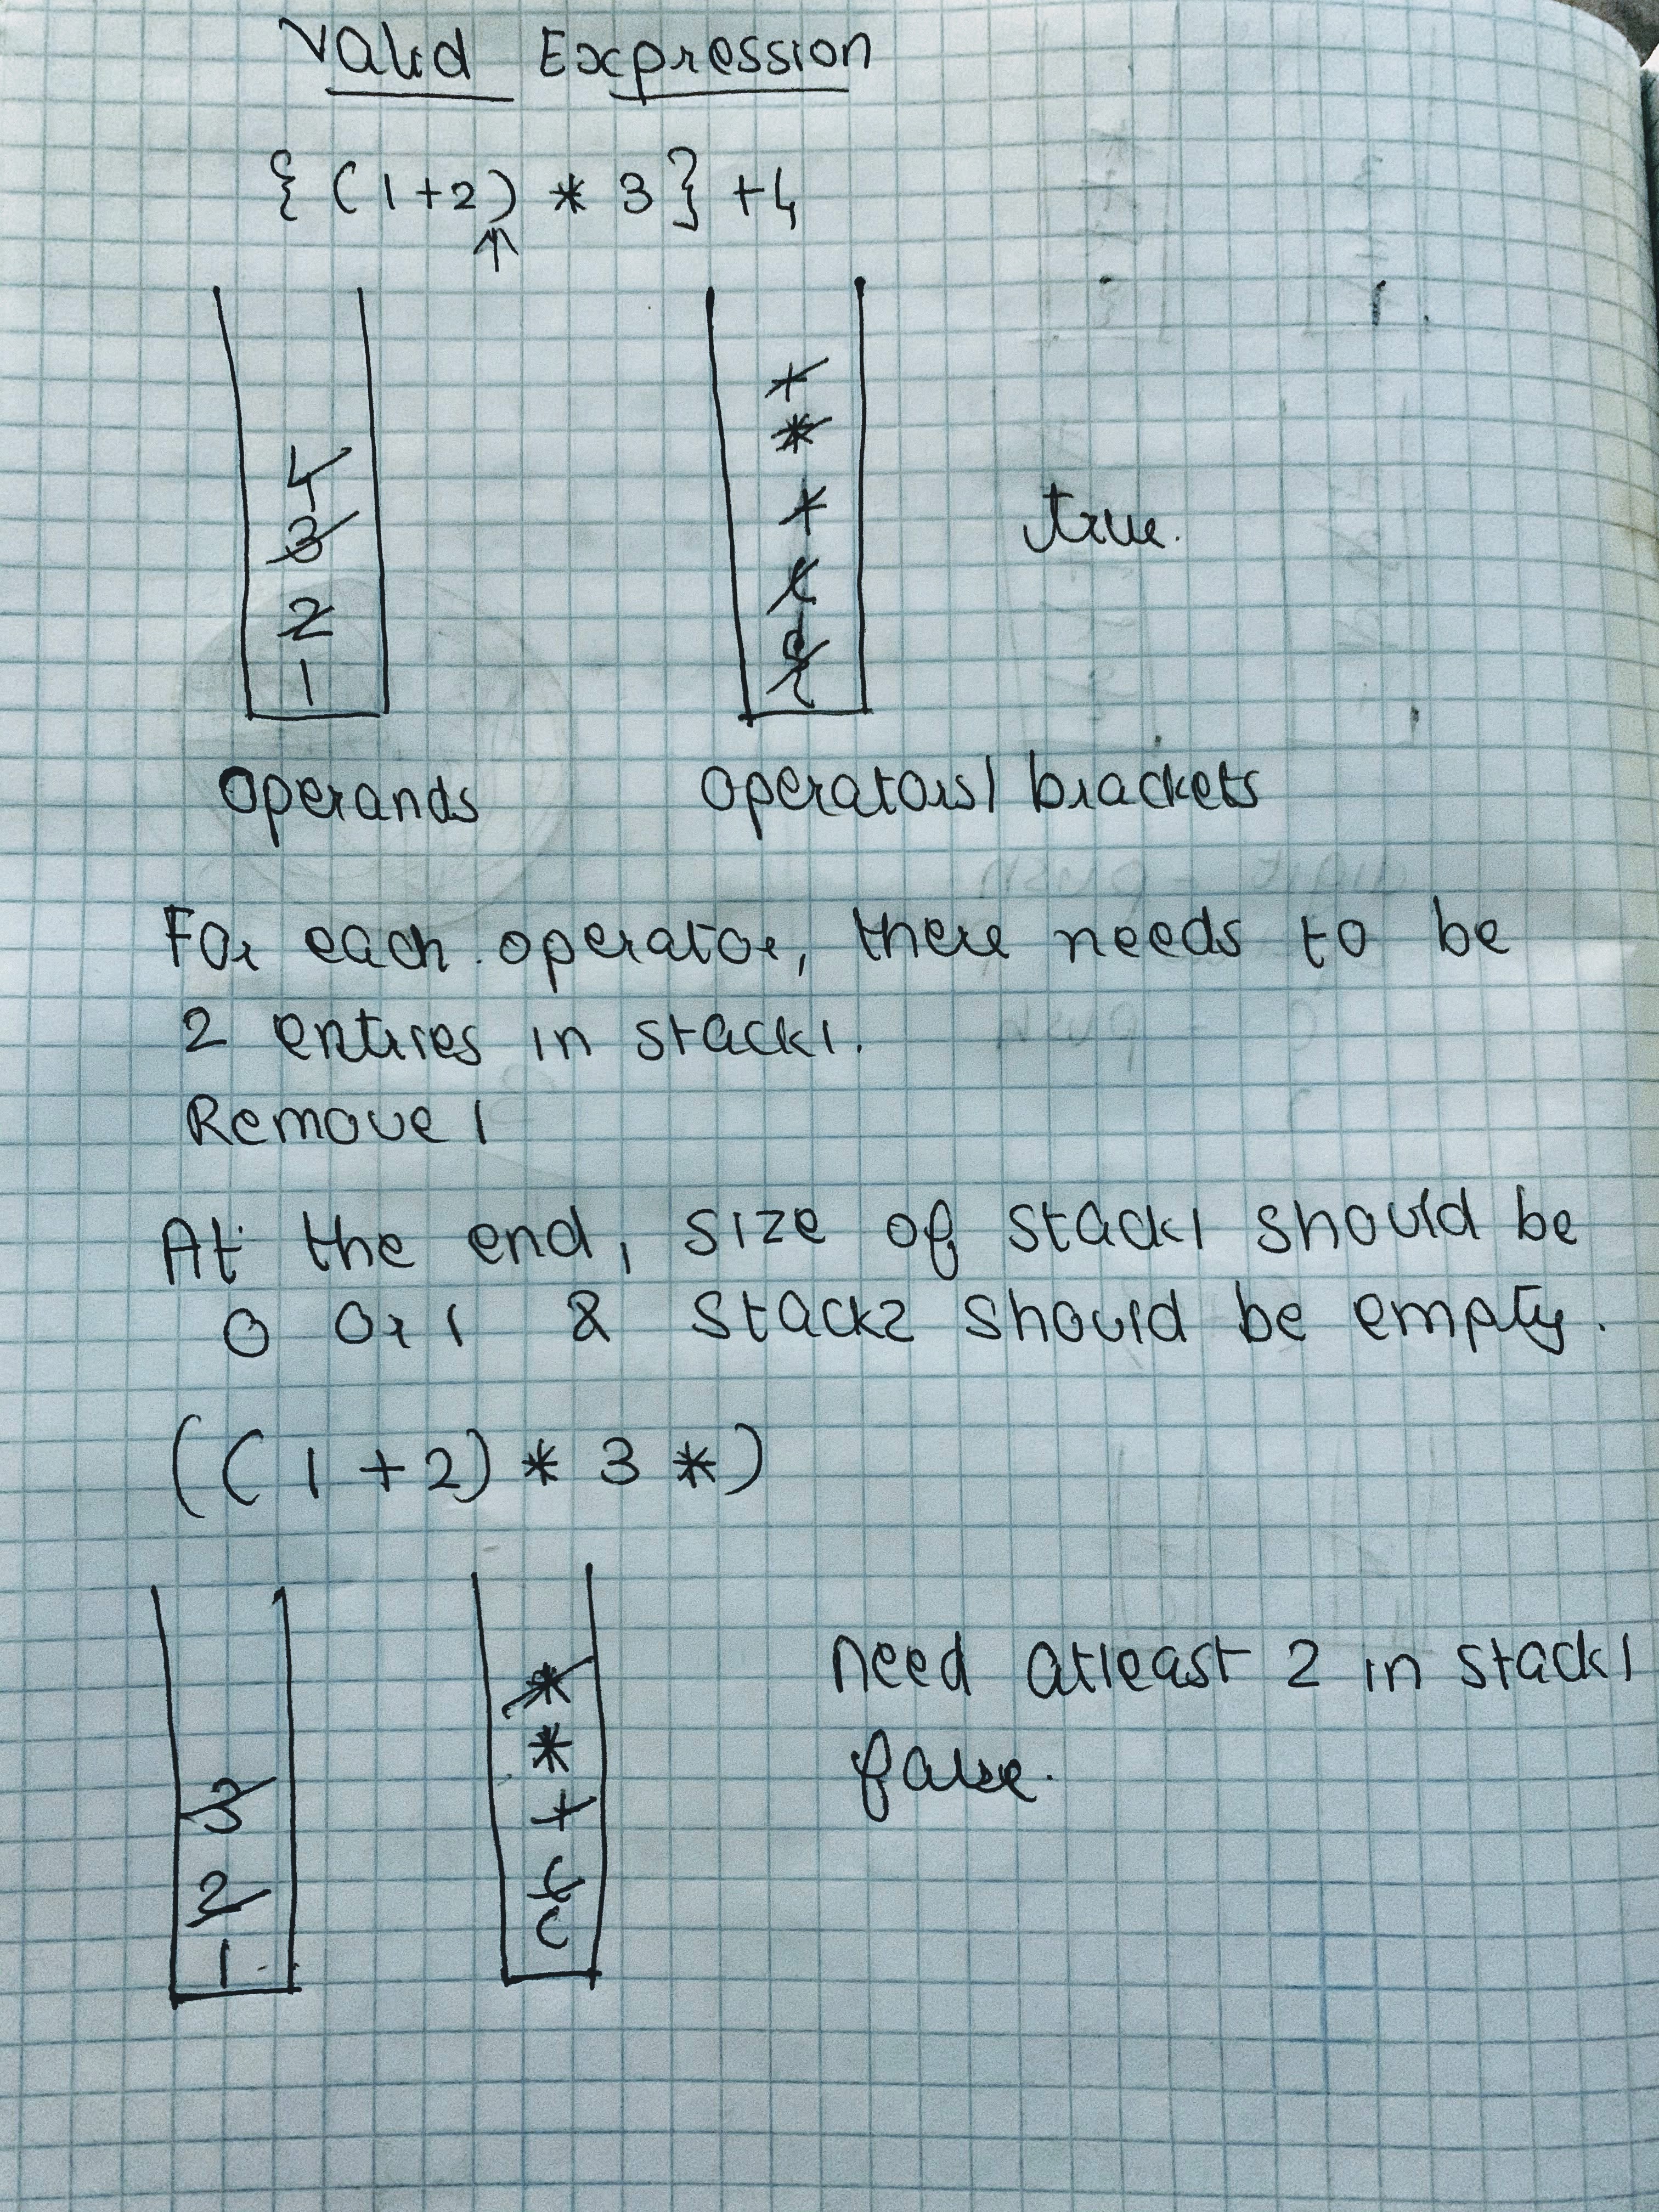 Valid Expression
{ (1+2) * 3} +4
+
*
4 +
3 (
2 {
1
true.
Operands Operators/ brackets
For each operator, there needs to be
2 entires in stack1.
Remove 1
At the end, size of stack1 should be
0 or 1 & stack2 should be empty.
((1 + 2) * 3 *)
*
*
3 +
2 (
1 (
Need atleast 2 in stack1
false.